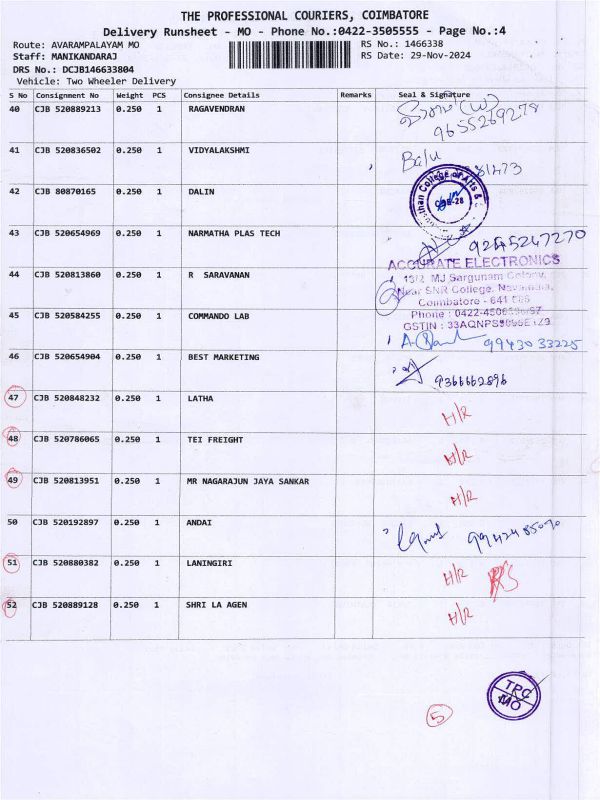 THE PROFESSIONAL COURIERS, COIMBATORE
Delivery Runsheet - MO - Phone No.:0422-3505555 - Page No.:4
Route: AVARAMPALAYAM MO RS No.: 1466338
Staff: MANIKANDARAJ RS Date: 29-Nov-2024
DRS No.: DCJB146633804
Vehicle: Two Wheeler Delivery
S No Consignment No Weight PCS Consignee Details Remarks Seal & Signature
40 CJB 520889213 0.250 1 RAGAVENDRAN
9655269278
41 CJB 520836502 0.250 1 VIDYALAKSHMI Balu
42 CJB 80870165 0.250 1 DALIN
College of Arts &
43 CJB 520654969 0.250 1 NARMATHA PLAS TECH 9245247270
ACCURATE ELECTRONICS
44 CJB 520813860 0.250 1 R SARAVANAN
MJ Sargunam Colony,
Near SNR College,
Coimbatore - 641
45 CJB 520584255 0.250 1 COMMANDO LAB
Phone :
GSTIN :
99430 33225
46 CJB 520654904 0.250 1 BEST MARKETING
9366662896
47 CJB 520848232 0.250 1 LATHA H/R
48 CJB 520786065 0.250 1 TEI FREIGHT H/R
49 CJB 520813951 0.250 1 MR NAGARAJUN JAYA SANKAR H/R
50 CJB 520192897 0.250 1 ANDAI
51 CJB 520880382 0.250 1 LANINGIRI H/R
52 CJB 520889128 0.250 1 SHRI LA AGEN H/R
TPC
MO
5